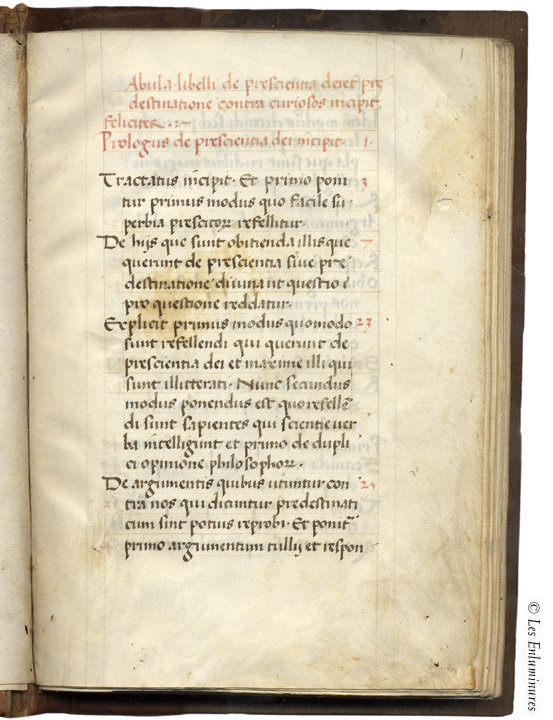 Abula libelli de prescientia dei et pre-
destinatione contra curiosos incipit
feliciter.
Prologus de prescientia dei incipit. 1.
Tractatus incipit. Et primo poni 3
tur primus modus quo facile su-
perbia prescitoꝝ refellitur.
De hijs que sunt obitienda illis que 7
querunt de prescientia siue pre
destinatione diuina ut questio
pro questione reddatur.
Explicit primus modus quomodo 23
sunt refellendi qui querunt de
prescientia dei et maxime illi qui
sunt illitterati. Nunc secundus
modus ponendus est quo refellē
di sunt sapientes qui scientie uer
ba intelligunt et primo de dupli
ci opinione philosophoꝝ.
De argumentis quibus utuntur con 25
tra nos qui dicuntur predestinati
cum sint potius reprobi. Et ponit̄
primo argumentum tullij et respon-
1
© Les Enluminures